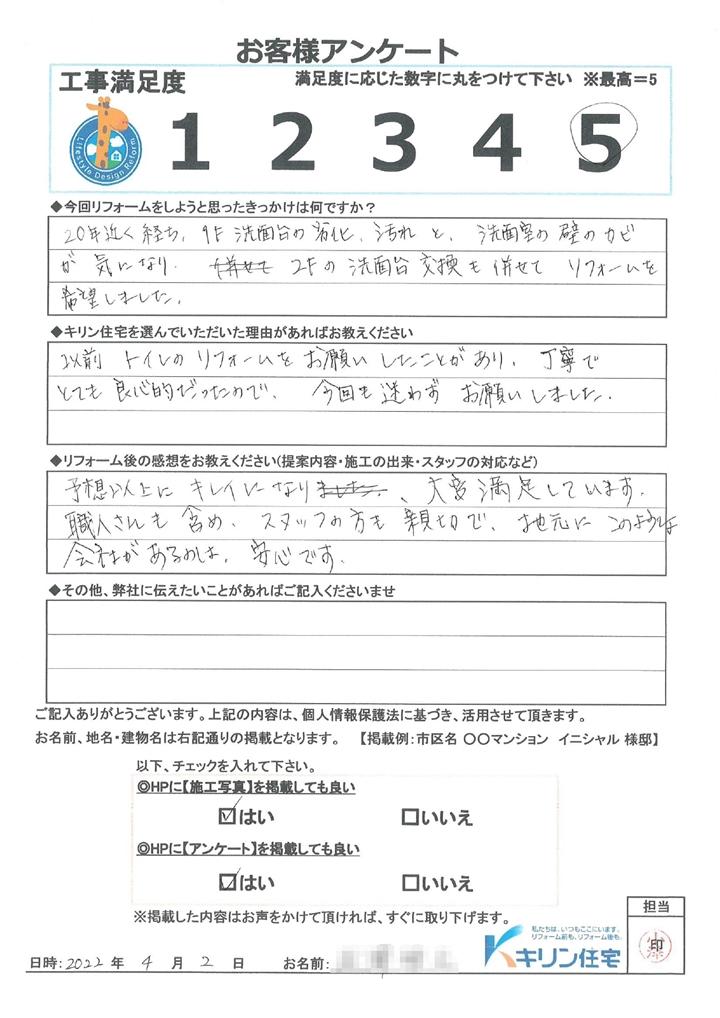 お客様アンケート
工事満足度
満足度に応じた数字に丸をつけて下さい ※最高=5
Lifestyle Design Reform
1 2 3 4 5
◆今回リフォームをしようと思ったきっかけは何ですか?
20年近く経ち、1F 洗面台の劣化、汚れ と、 洗面室の 壁の カビ
が 気になり、 併せて 2Fの 洗面台 交換も 併せて リフォームを
希望しました。
◆キリン住宅を選んでいただいた理由があればお教えください
以前 トイレの リフォームを お願い したことがあり、 丁寧で
とても 良心的だったので、 今回も 迷わず お願いしました。
◆リフォーム後の感想をお教えください(提案内容・施工の出来・スタッフの対応など)
予想以上に キレイになり ました 、 大変 満足しています。
職人さんも 含め、 スタッフの方も 親切で、 お地元に このような
会社があるのは、 安心です。
◆その他、弊社に伝えたいことがあればご記入くださいませ
ご記入ありがとうございます。上記の内容は、個人情報保護法に基づき、活用させて頂きます。
お名前、地名・建物名は右記通りの掲載となります。 【掲載例:市区名 〇〇マンション イニシャル 様邸】
以下、チェックを入れて下さい。
◎HPに【施工写真】を掲載しても良い
☑はい □いいえ
◎HPに【アンケート】を掲載しても良い
☑はい □いいえ
※掲載した内容はお声をかけて頂ければ、すぐに取り下げます。
担当
印
私たちは、いつもここにいます。
リフォーム前も、リフォーム後も。
キリン住宅
日時:2022 年 4 月 2 日 お名前: